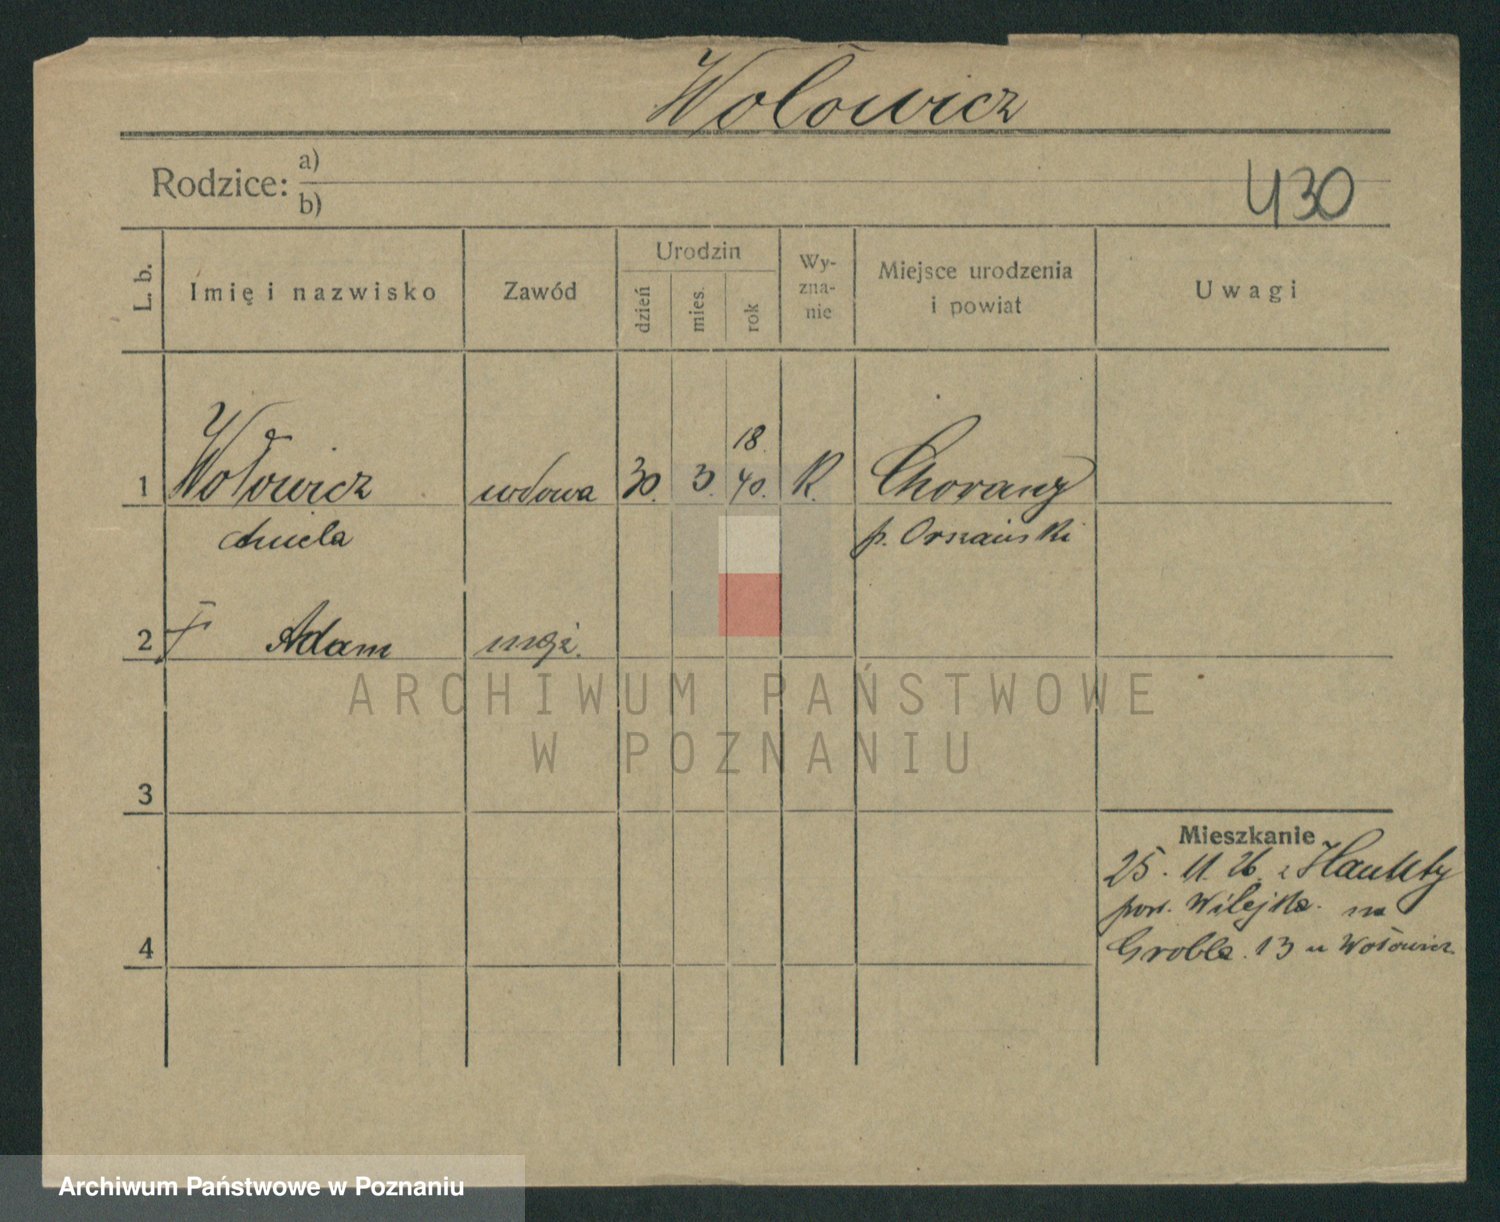 Wołowicz
Rodzice: a)
b)
430
L. b.
Imię i nazwisko
Zawód
Urodzin
dzień
mies.
rok
Wy-
zna-
nie
Miejsce urodzenia
i powiat
Uwagi
18
1 Wołowicz wdowa 30. 3. 40. R. Chorany
Aniela p. Orszański
2 † Adam mąż.
ARCHIWUM PAŃSTWOWE
W POZNANIU
3
Mieszkanie
25. 11. 26. z
pow. Wilejka. na
4 Grobla. 13 u Wołowicz
Archiwum Państwowe w Poznaniu